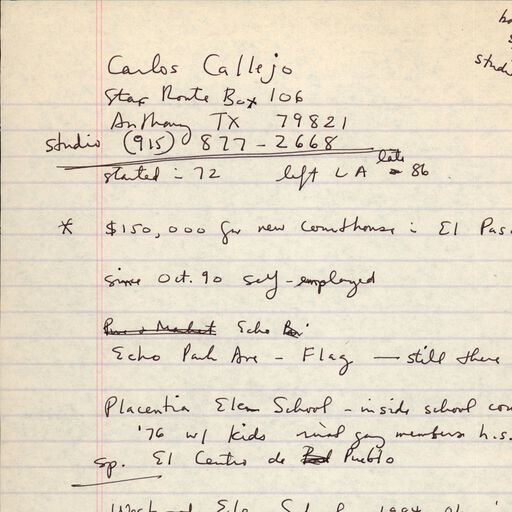 studi
Carlos Callejo
Star Route Box 106
Anthony TX 79821
studio (915) 877-2668
started in 72 left LA late 86
* $150,000 for new courthouse in El Pas
since Oct. 90 self-employed
Echo
Echo Park Ave - Flag — still there
Placentia Elem School - inside school
'76 w/ kids rival gang members h.s.
sp. El Centro de Pueblo